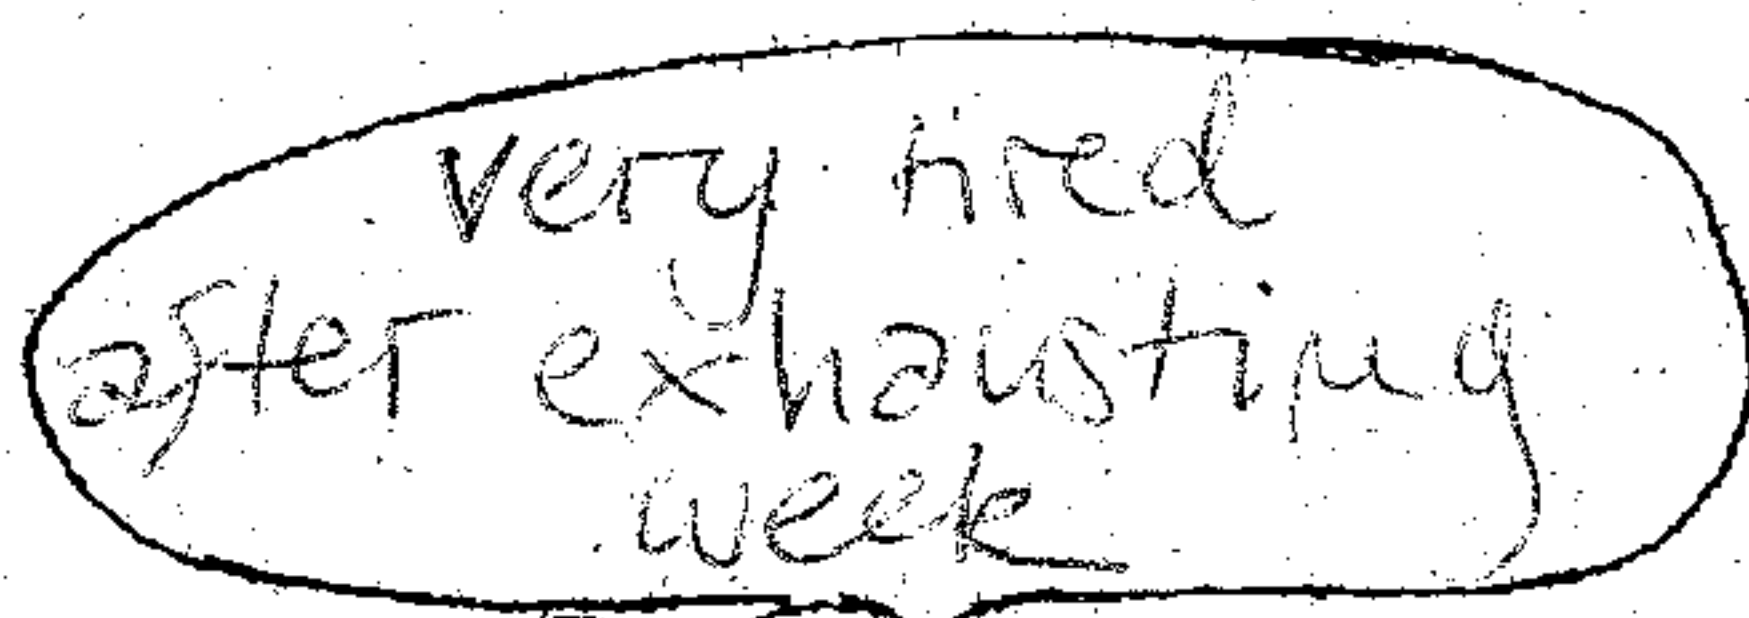 very tired
after exhausting
week